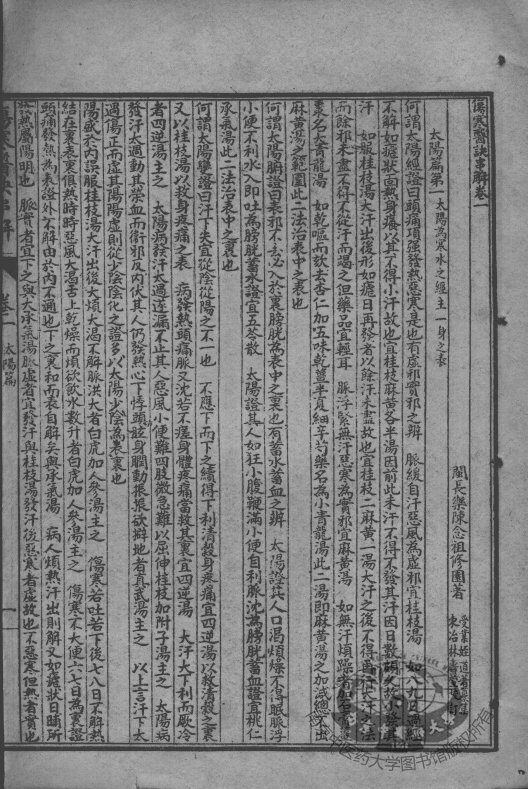 傷寒醫訣串解卷一
閩長樂陳念祖修園著
太陽篇第一 太陽為寒水之經主一身之表
何謂太陽經證曰頭痛項強發熱惡寒是也有虛邪實邪之辨 脈緩自汗惡風為虛邪宜桂枝湯 如八九日過經
不解如瘧狀面熱身癢以其不得小汗故也宜桂枝麻黃各半湯因前此未汗不得不發其汗因日數
汗 如服桂枝湯大汗出後形如瘧日再發者以餘汗未盡故也宜桂枝二麻黃一湯大汗之後不得再行大汗之法
而餘邪未盡不得不從汗而竭之但藥品宜輕耳 脈浮緊無汗惡寒為實邪宜麻黃湯 如無汗煩躁者加石膏
棗名大青龍湯 如乾嘔而欬去杏仁加五味乾薑半夏細辛芍藥名為小青龍湯此二湯即麻黃湯之加減總不出
麻黃湯之範圍此二法治表中之表也
何謂太陽腑證曰表邪不去必入於裏膀胱為表中之裏也有蓄水蓄血之辨 太陽證其人口渴煩燥不得眠脈浮
小便不利水入即吐為膀胱蓄水證宜五苓散 太陽證其人如狂小腹鞕滿小便自利脈沈為膀胱蓄血證宜桃仁
承氣湯此二法治表中之裏也
何謂太陽變證曰汗下失宜從陰從陽之不一也 不應下而下之續得下利清穀身疼痛宜四逆湯以救清穀之裏
又以桂枝湯以救身疼痛之表 病發熱頭痛脈反沈若不瘥身體疼痛當救其裏宜四逆湯 大汗大下利而厥冷
者四逆湯主之 太陽病發汗太過遂漏不止其人惡風小便難四肢微急難以屈伸桂枝加附子湯主之 太陽病
發汗太過動其營血而衛邪反內伏其人仍發熱心下悸頭眩身瞤動振振欲擗地者真武湯主之 以上言汗下太
過傷正而虛其陽陽虛則從少陰陰化之證多以太陽少陰為表裏也
陽盛於內誤服桂枝湯大汗出後大煩大渴不解脈洪大者白虎加人參湯主之 傷寒若吐若下後七八日不解熱
結在裏表裏俱熱時時惡風大渴舌上乾燥而煩欲飲水數升者白虎加人參湯主之 傷寒不大便六七日為裏證
頭痛發熱為表證外不解由於內不通也下之裏和而表自解矣與承氣湯 病人煩熱汗出則解又如瘧狀日晡所
發熱屬陽明也 脈實者宜下之與大承氣湯脈虛者宜發汗與桂枝湯發汗後惡寒者虛故也不惡寒但熱者實也
卷一 太陽篇